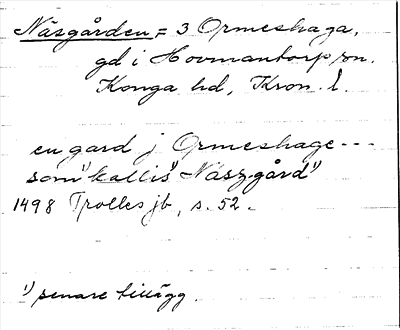 Näsgården = 3 Ormeshaga,
gd i Hovmantorp sn.
Konga hd, Kron. l.
en gard j Ormeshage ---
som "kallis" Näszgård 1)
1498 Trolles jb, s. 52.
1) senare tillägg.